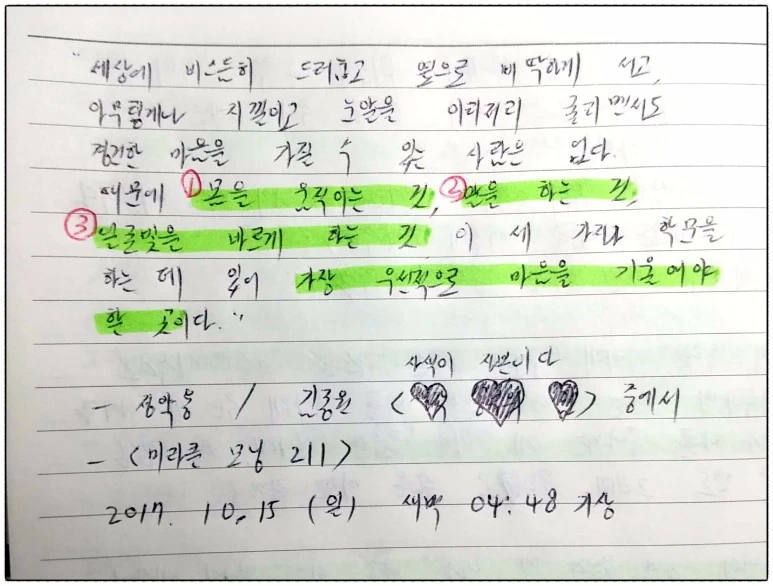 "세상에 비스듬히 드러눕고 옆으로 삐딱하게 서고,
아무렇게나 지껄이고 눈알을 이리저리 굴리면서도
경건한 마음을 가질 수 있는 사람은 없다.
때문에 ①몸을 움직이는 것, ②말을 하는 것,
③얼굴빛을 바르게 하는 것 이 세 가지가 학문을
하는 데 있어 가장 우선적으로 마음을 기울여야
할 곳이다."
사색이 자본이다
- 정약용 / 김종원 < > 중에서
- <미라클 모닝 211>
2017. 10. 15 (일) 새벽 04:48 기상